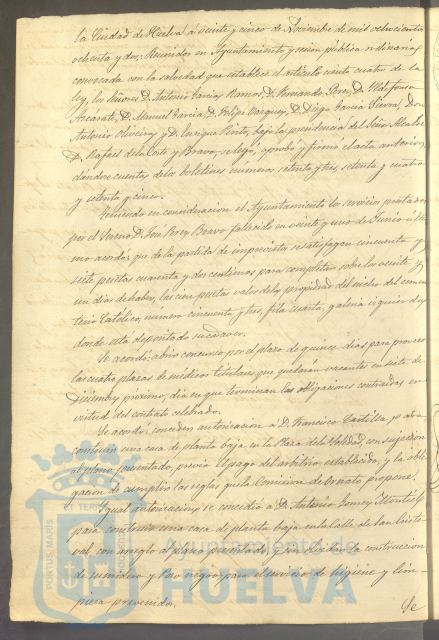 la Ciudad de Huelva á veinte y cinco de Noviembre de mil ochocientos
ochenta y dos: Reunidos en Ayuntamiento y sesión pública ordinaria,
convocada con la salvedad que establece el artículo ciento cuatro de la
ley, los Señores D. Antonio García Ramos, D. Fernando Perez, D. Ildefonso
Azcárate, D. Manuel García, D. Felipe Vazquez, D. Diego García Sierra, Don
Antonio Oliveira y D. Enrique Pinto, bajo la presidencia del Señor Alcalde
D. Rafael de la Corte y Bravo, se leyó, aprobó y firmó el acta anterior,
dándose cuenta de los boletines números setenta y tres, setenta y cuatro
y setenta y cinco.
Teniendo en consideración el Ayuntamiento los servicios prestados
por el Sereno D. José Bravo fallecido en veinte y uno de Junio últi-
mo acordó: que de la partida de imprevistos se satisfagan cincuenta y
siete pesetas cuarenta y dos centimos para completar sobre los veinte y
un dias de haber, las cien pesetas valor de la propiedad del nicho del cemen-
terio Católico, número cincuenta y tres, fila cuarta, galeria izquierda,
donde está depositado su cadaver.
Se acordó: abrir concurso por el plazo de quince dias para proveer
las cuatro plazas de médicos titulares que quedarán vacantes en siete de
Diciembre próximo, dia en que terminan las obligaciones contraidas en
virtud del contrato celebrado.
Se acordó: conceder autorización a D. Francisco Castilla, para
construir una casa de planta baja en la Plaza de la Soledad, con sujeción
al plano presentado, previo el pago del arbitrio establecido, y la obli-
gación de cumplir las reglas que la Comisión de ornato propone.
Igual autorización se concedió a D. Antonio Gomez Montiel
para construir una casa de planta baja en la calle de San Cristo-
val, con arreglo al plano presentado y sin olvidar la construcción
de sumidero y pozo negro, para el servicio de higiene y lim-
pieza prevenido.
Se
PORTUS MARIS
ET TERRAE
Ayuntamiento de
HUELVA